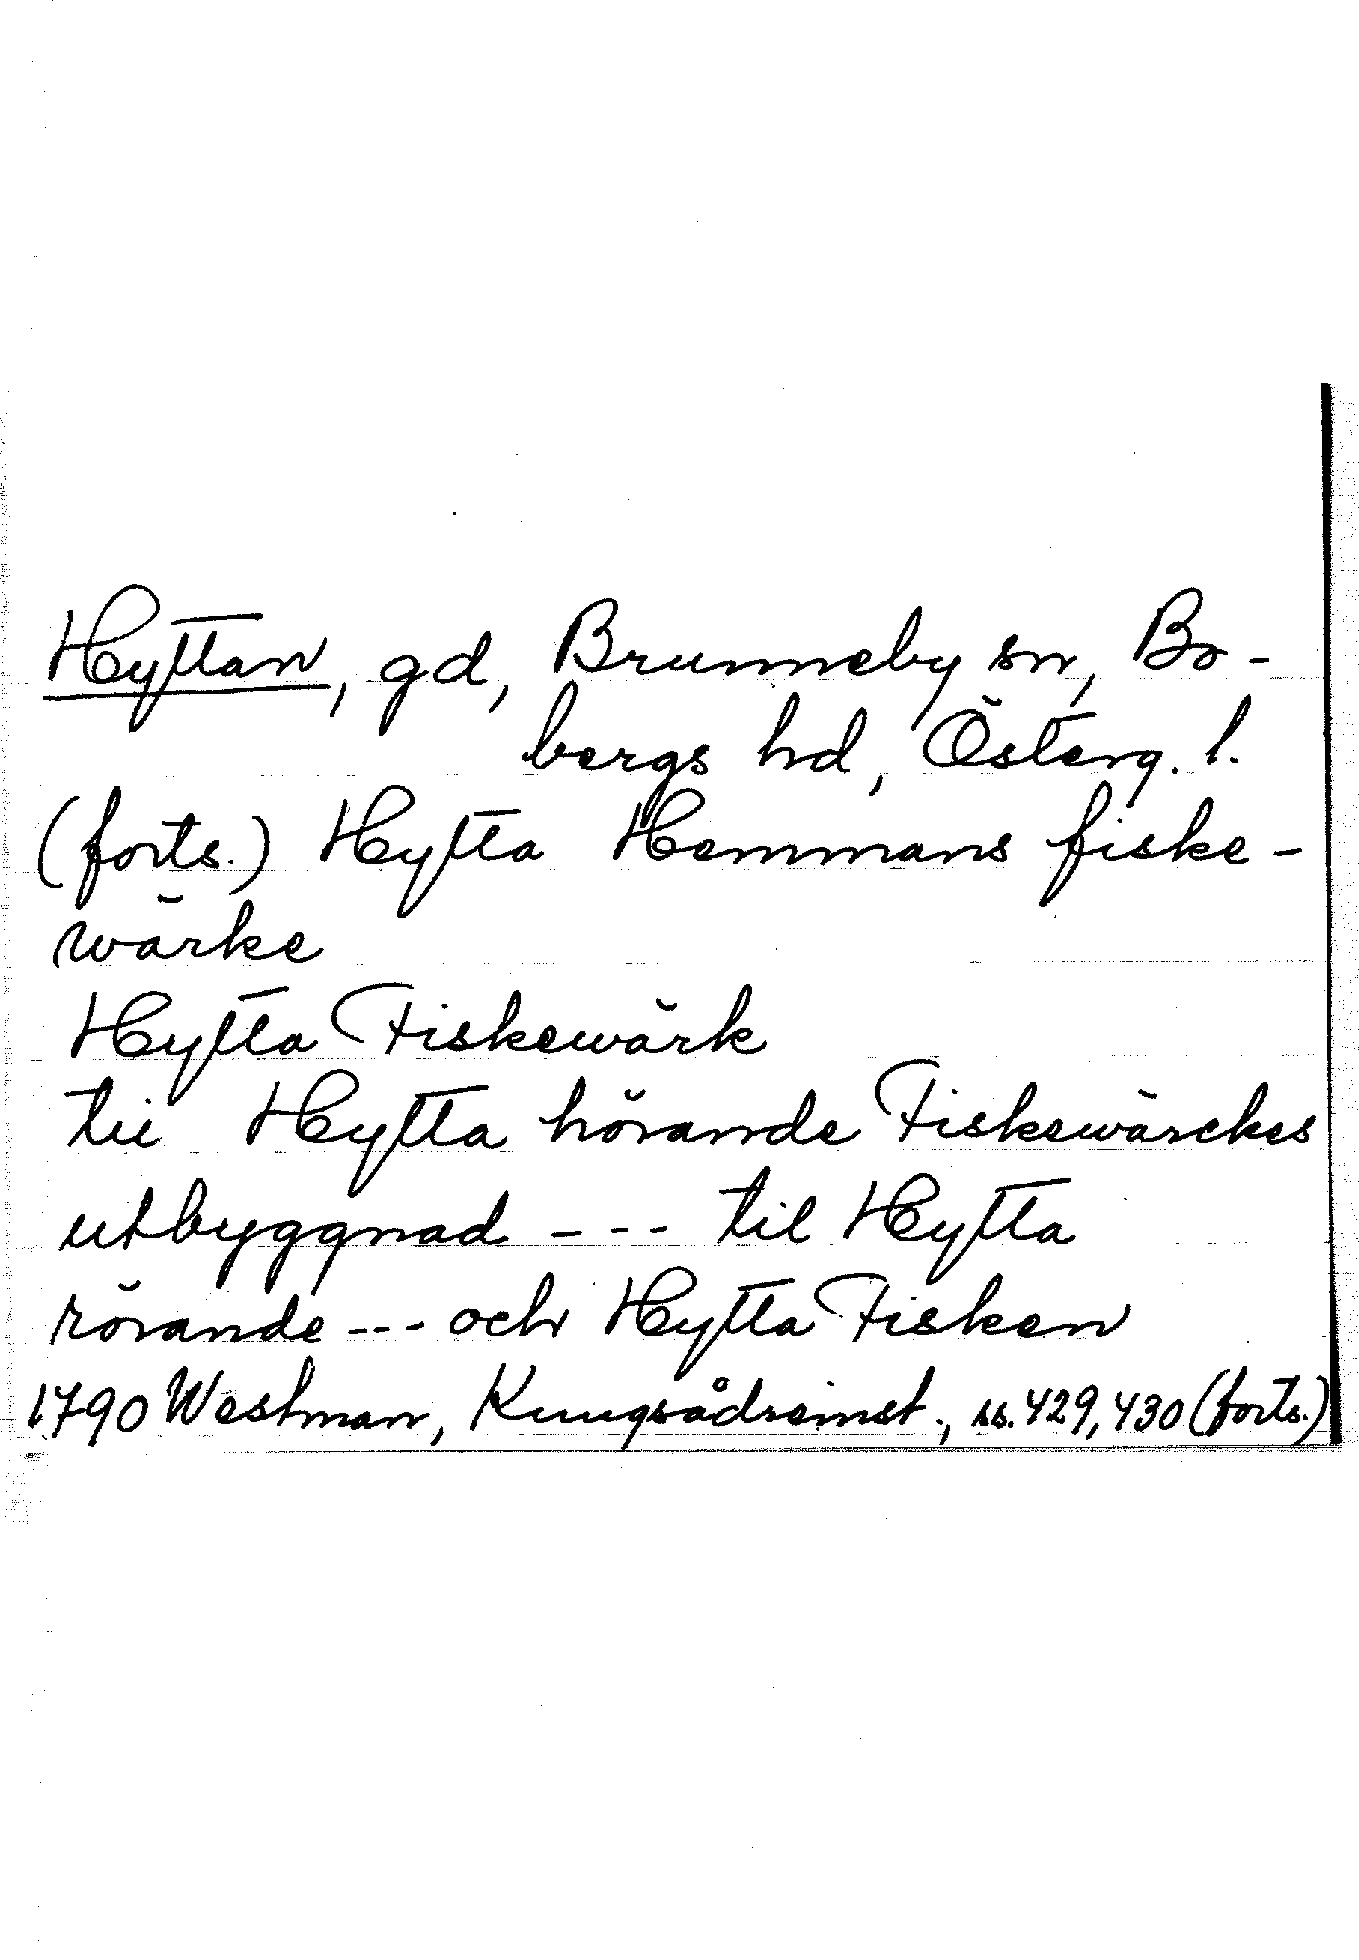 Hyttan, gd, Brunneby sn, Bo-
bergs hd, Österg. l.
(forts.) Hytta Hemmans fiske-
wärke
Hytta Fiskewärk
til Hytta hörande Fiskewärckes
utbyggnad - - - til Hytta
rörande --- och Hytta Fisken
1790 Westman, Kungsådreinst., ss. 429, 430 (forts.)